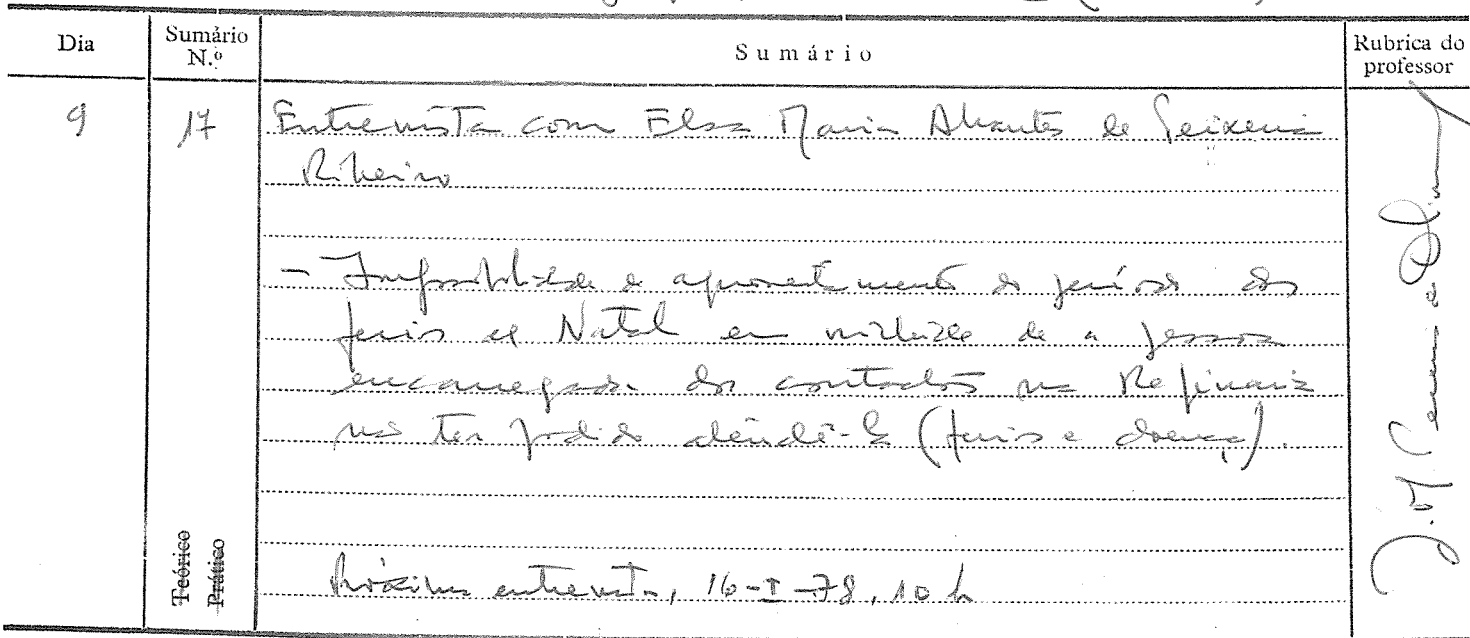 Dia
Sumário N.º
Sumário
Rubrica do professor
9
17
Entrevista com Elsa Maria Abrantes de Teixeira
Ribeiro
- Impossibilidade de aproveitamento do período das
férias de Natal em virtude de a pessoa
encarregada dos contactos na Refinaria
não ter podido atendê-la (férias e doença).
Teórico
Prático
Próxima entrevista, 16-I-78, 10 h